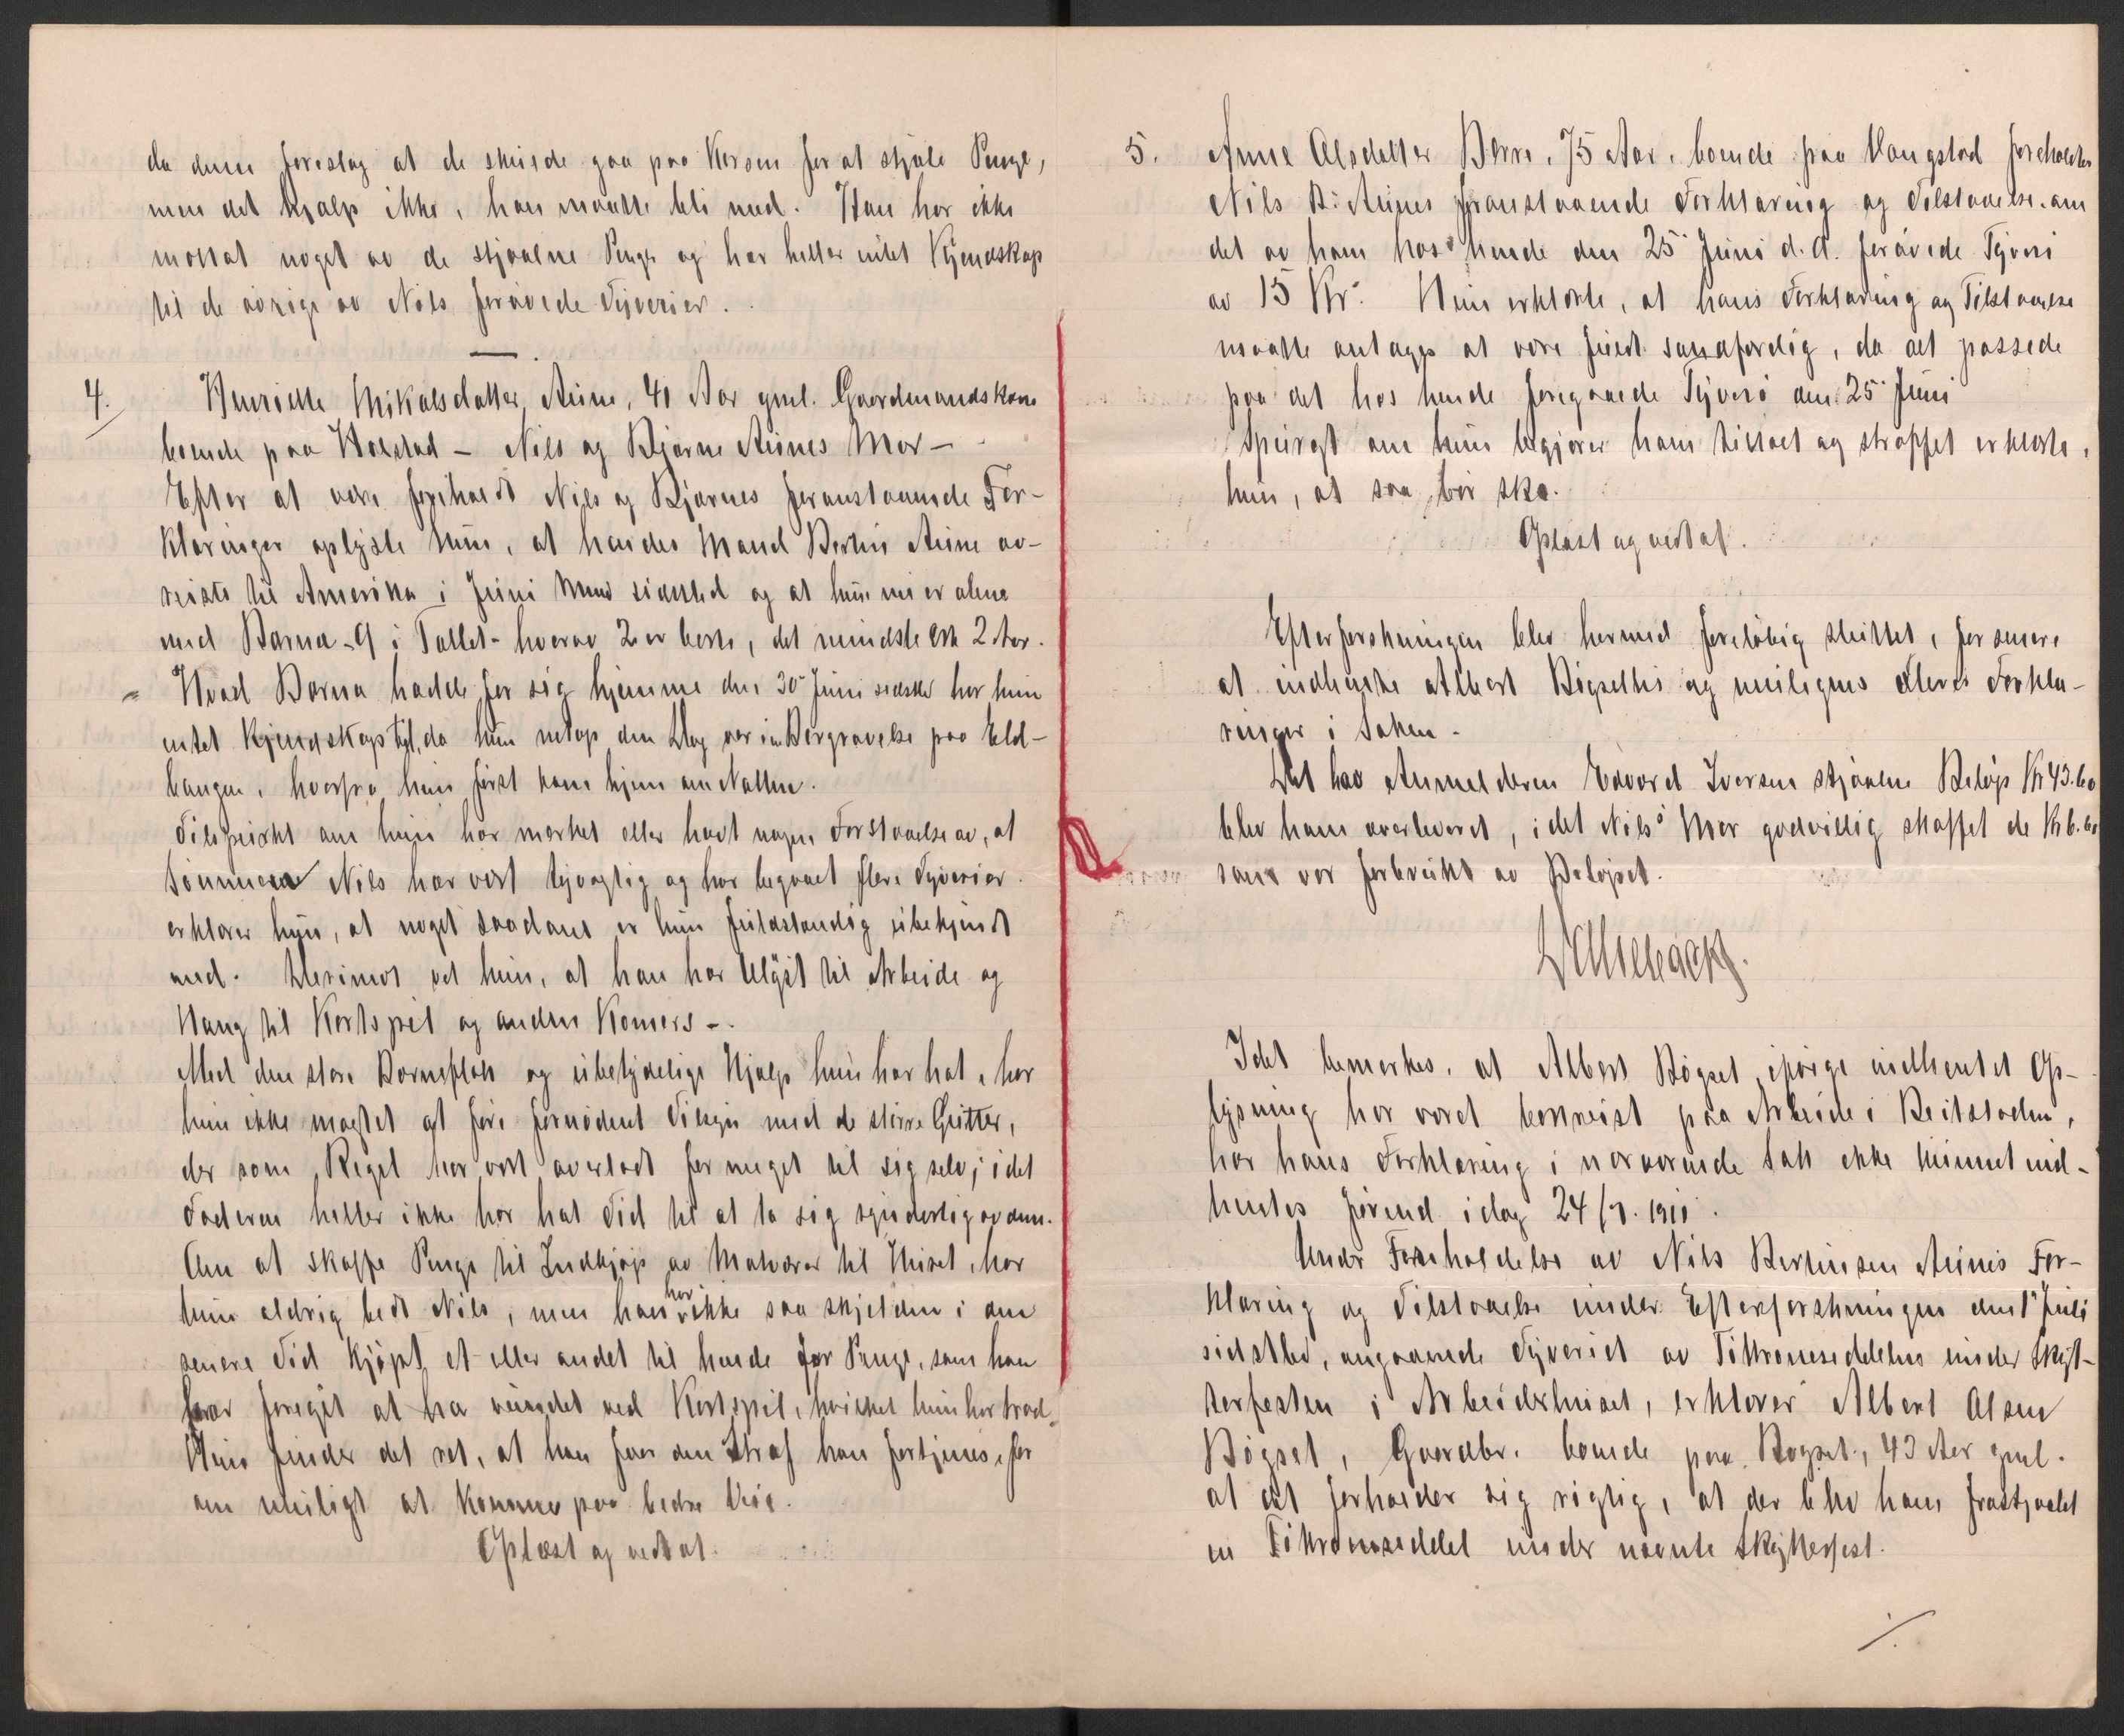 da denne foreslog at de skulde gaa paa Korsen for at stjæle Penge,
men det hjalp ikke, han maatte bli med. Han har ikke
mottat noget av de stjaalne Penge og har heller intet Kjendskap
til de øvrige av Nils forøvede Tyverier.
4. Henriette Mikalsdatter Aune, 41 Aar gml. Gaardmandskone
boende paa Holstad – Nils og Bjarne Aunes Mor –
Efter at være foreholdt Nils og Bjarnes foranstaaende For-
klaringer oplyste hun, at hendes Mand Bertin Aune av-
reiste til Amerika i Juni Mnd sidstled og at hun nu er alene
med Barna - 9 i Tallet - hvorav 2 er borte, det mindste er 2 Aar.
Hvad Barna hadde for sig hjemme den 30' Juni sidstl. har hun
intet Kjendskap til, da hun netop den Dag var i en Begravelse paa Eld-
haugen, hvorfra hun først kom hjem om Natten.
Tilspurt om hun har merket eller havt nogen Forstaaelse av, at
Sønnen Nils har vært tyvagtig og har begaaet flere Tyverier
erklærer hun, at noget saadant er hun fuldstændig ubekjendt
med. Derimot vet hun, at han har Ulyst til Arbeide og
Hang til Kortspil og anden Komers –.
Med den store Barneflok og ubetydelige Hjælp hun har hat, har
hun ikke magtet at føre fornødent Tilsyn med de større Gutter,
der som Regel har vært overladt for meget til sig selv; idet
Faderen heller ikke har hat Tid til at ta sig synderlig av dem.
Om at skaffe Penge til Indkjøp av Matvarer til Huset, har
hun aldrig bedt Nils, men han har ikke saa skjelden i den
senere Tid kjøpt et eller andet til hende for Penge, som han
har foregit at ha vundet ved Kortspil, hvilket hun har trod.
Hun finder det ret, at han faar den Straf han fortjener, for
om muligt at komme paa bedre Veie.
Oplæst og vedtat.
5. Anne Olsdatter Berre, 75 Aar, boende paa Vangstad foreholdtes
Nils B. Aunes foranstaaende Forklaring og Tilstaaelse om
det av ham hos hende den 25' Juni d. A. forøvede Tyveri
av 15 Kr. Hun erklærte, at hans Forklaring og Tilstaaelse
maatte antages at være fuldt sandfærdig, da det passede
paa det hos hende foregaaede Tyveri den 25' Juni
Spurgt om hun begjærer ham tiltalt og straffet erklærte
hun, at saa bør ske.
Oplæst og vedtat.
Efterforskningen blev hermed foreløbig sluttet, for senere
at indhente Albert Bøgsets og muligens fleres Forkla-
ringer i Saken.
Det hos Anmelderen Edvard Iversen stjaalne Beløp Kr 43.60
blev ham overleveret, idet Nils' Mor godvillig skaffet de Kr 6.60
som var forbrukt av Beløpet.
Idet bemerkes, at Albert Bøgset ifølge indhentet Op-
lysning har været bortreist paa Arbeide i Beitstaden,
har hans Forklaring i nærværende Sak ikke kunnet ind-
hentes førend idag 24/7. 1911.
Under Foreholdelse av Nils Bertinsen Aunes For-
klaring og Tilstaaelse under Efterforskningen den 1' Juli
sidstled, angaaende Tyveriet av Tikroneseddelen under Skyt-
terfesten i Arbeiderhuset, erklærer Albert Olsen
Bøgset, Gaardbr. boende paa Bøgset, 43 Aar gml.
at det forholder sig rigtig, at der blev ham frastjaalet
en Tikroneseddel under nævnte Skytterfest.